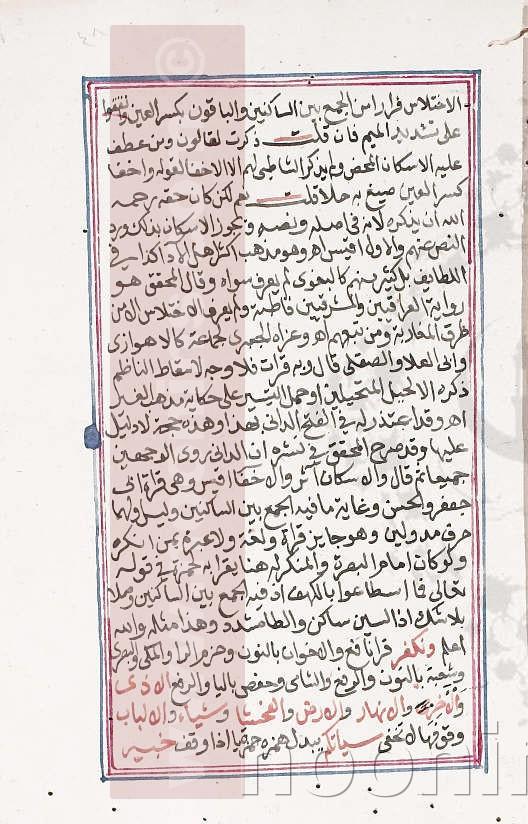 الاختلاس فرارا من الجمع بين الساكنين والباقون بكسر العين واتفقوا
على تشديد الميم فان قلت ذكرت لقالون ومن عطف
عليه الاسكان المحض ولم يذكر الشاطبي لهم الا الاخفا لقوله واخفا
كسر العين صيغ به حلا قلت نعم لكن كان حقه رحمه
الله ان يذكره لانه في اصله ونصه ويجوز الاسكان بذلك ورد
النص عنهم والاول اقيس اهـ وهو مذهب اكثر اهل الادا كذا في
اللطايف بل كثير منهم كالبغوي لم يعرف سواه وقال المحقق هو
رواية العراقيين والمشرقيين قاطبة ولم يعرف الاختلاس الا من
طرق المغاربة ومن تبعهم اهـ وعزاه الجعبري جماعة كالاهوازي
وابي العلا والصقلي قال وبه قرات فلا وجه لاسقاط الناظم
ذكره الا لحيل المتحيلين اوحمل التيسير على حكاية مذهب الغير
اهـ وقد اعتذر له في الفتح الداني بهذا وهذه حجج لا دليل
عليها وقد صرح المحقق في نشره ان الداني روى الوجهين
جميعا ثم قال والاسكان آثر والاخفا اقيس وهي قراة ابي
جعفر والحسن وغاية ما فيه الجمع بين الساكنين وليس اولهما
حرف مد ولين وهو جايز قراة ولغة ولا عبرة بمن انكره
ولو كان امام البصرة والمنكر له هنا يقرا به لحمزة في قوله
تعالى فما اسطاعوا بالكهف اذ فيه الجمع بين الساكنين وصلا
بلا شك اذ السين ساكن والطا مشدد وهذا مثله والله
اعلم ونكفر قرا نافع والاخوان بالنون وجزم الرا والمكي والبصري
وشعبة بالنون والرفع والشامي وحفص باليا والرفع الاذى
والاخرة والانهار والارض والفحشا ويشاء والالباب
وقوفها لا تخفى سيئاتكم يبدل همزه حمزة ياء اذا وقف خبير
noorlib